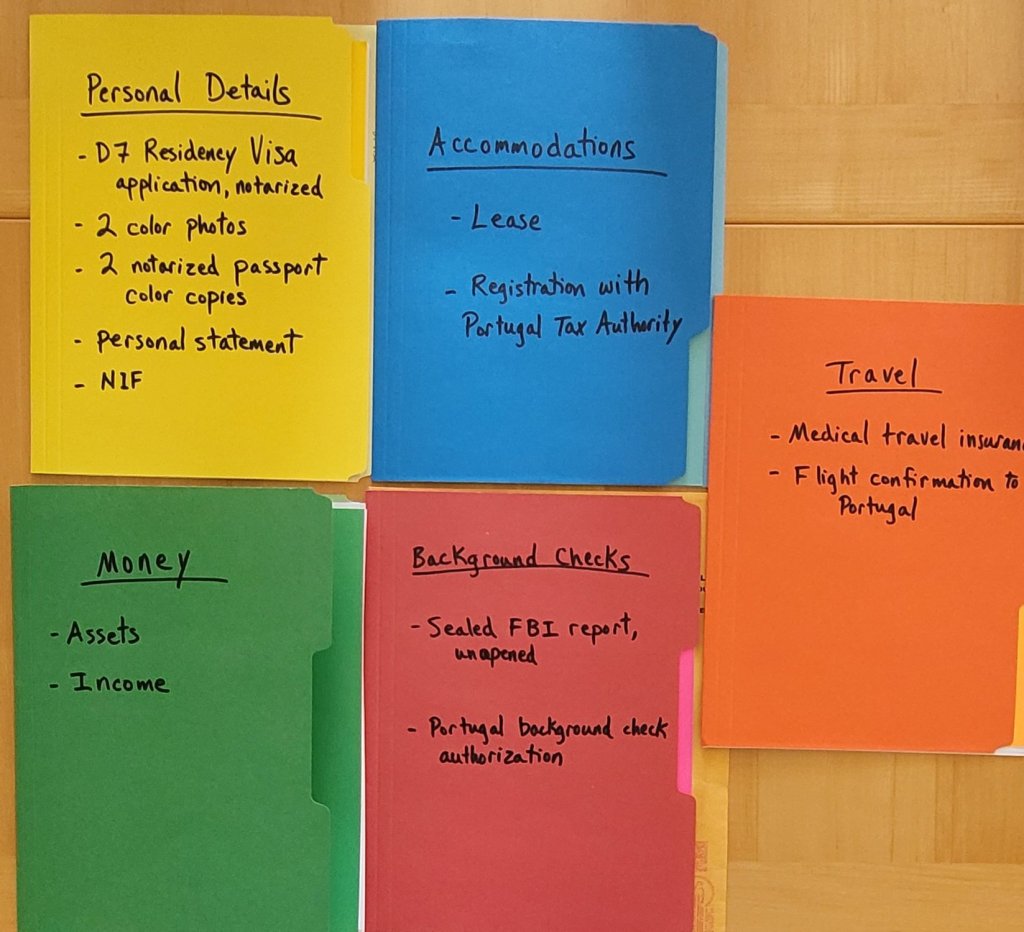 Personal Details
- D7 Residency Visa
application, notarized
- 2 color photos
- 2 notarized passport
color copies
- personal statement
- NIF
Accommodations
- Lease
- Registration with
Portugal Tax Authority
Travel
- Medical travel insuran
- Flight confirmation to
Portugal
Money
- Assets
- Income
Background Checks
- Sealed FBI report,
unopened
- Portugal background check
authorization